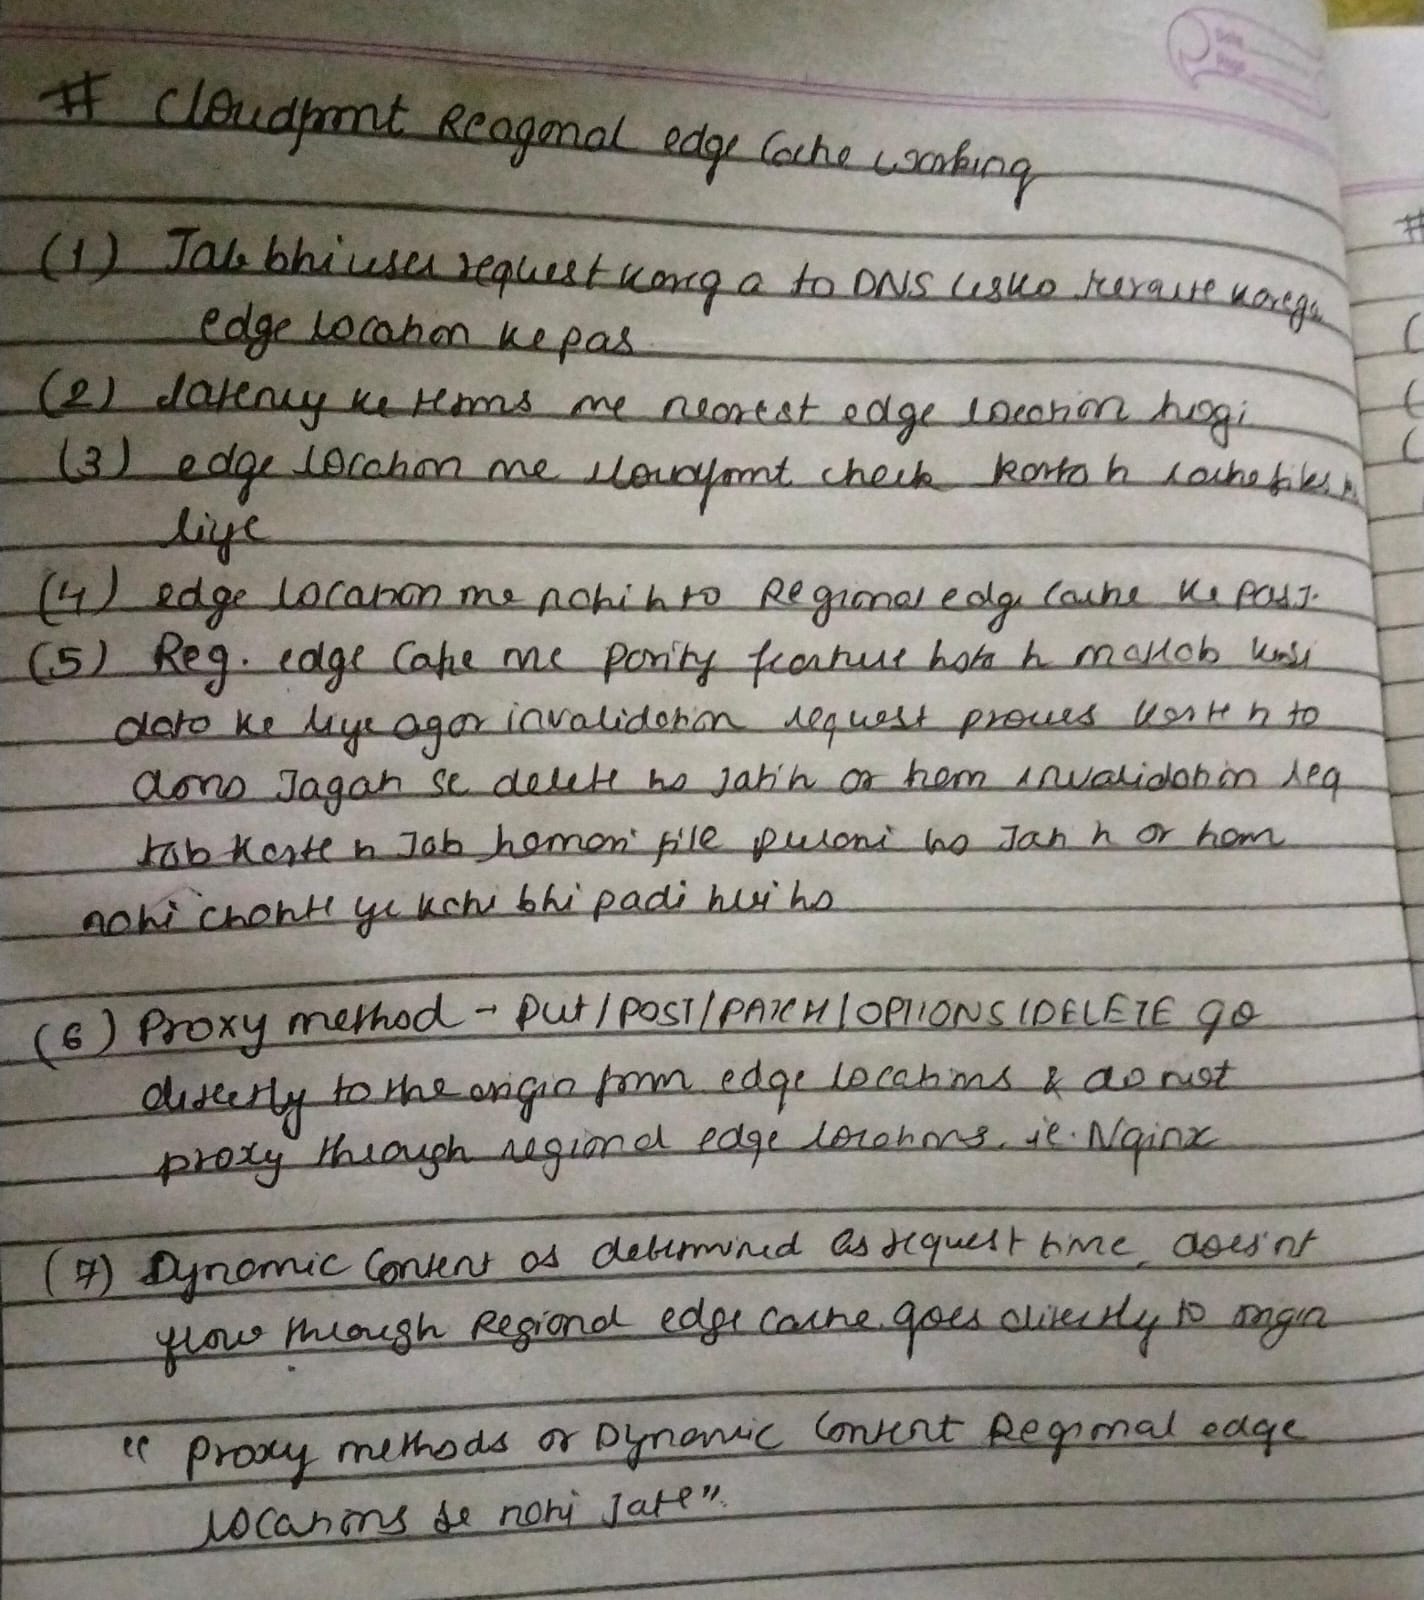 Date
Page
# Cloudfront Reagonal edge Cache working
(1) Jab bhi user request karega to DNS usko route karega
edge location ke pas
(2) latency ke terms me nearest edge location hogi
(3) edge location me cloudfront check karta h cache files k
liye
(4) edge location me nahi h to Regional edge cache ke pass.
(5) Reg. edge Cahe me parity feature hota h matlab kisi
data ke liye agar invalidation request proces karte h to
dono Jagah se delete ho jati h or ham invalidation req
tab karte h Jab hamari file purani ho Jati h or ham
nahi chahte ye kahi bhi padi hui ho
(6) Proxy method - Put/POST/PATCH/OPTIONS/DELETE go
directly to the origin from edge locations & do not
proxy through regional edge locations. ie. Nginx
(7) Dynamic Content as determined as request time, does'nt
flow through Regional edge cache. goes directly to origin
" Proxy methods or Dynamic Content Regional edge
locations se nahi Jate".
#
(
(
(